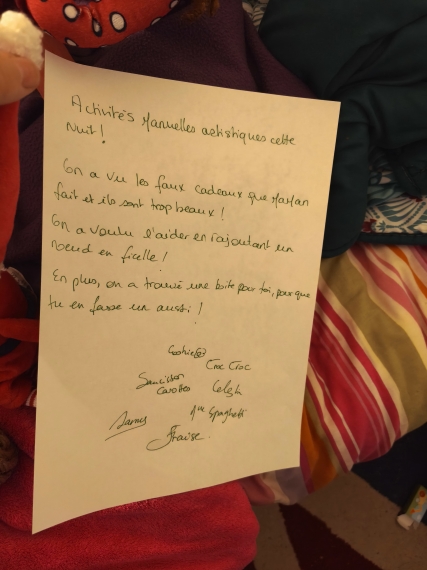 Activités Manuelles artistiques cette
Nuit !
On a vu les faux cadeaux que Maman
fait et ils sont trop beaux !
On a voulu l'aider en rajoutant un
noeud en ficelle !
En plus, on a trouvé une boite pour toi, pour que
tu en fasse un aussi !
Cookie
Croc Croc
Saucisson
Carottes
Mme Spaghetti
Fraise.